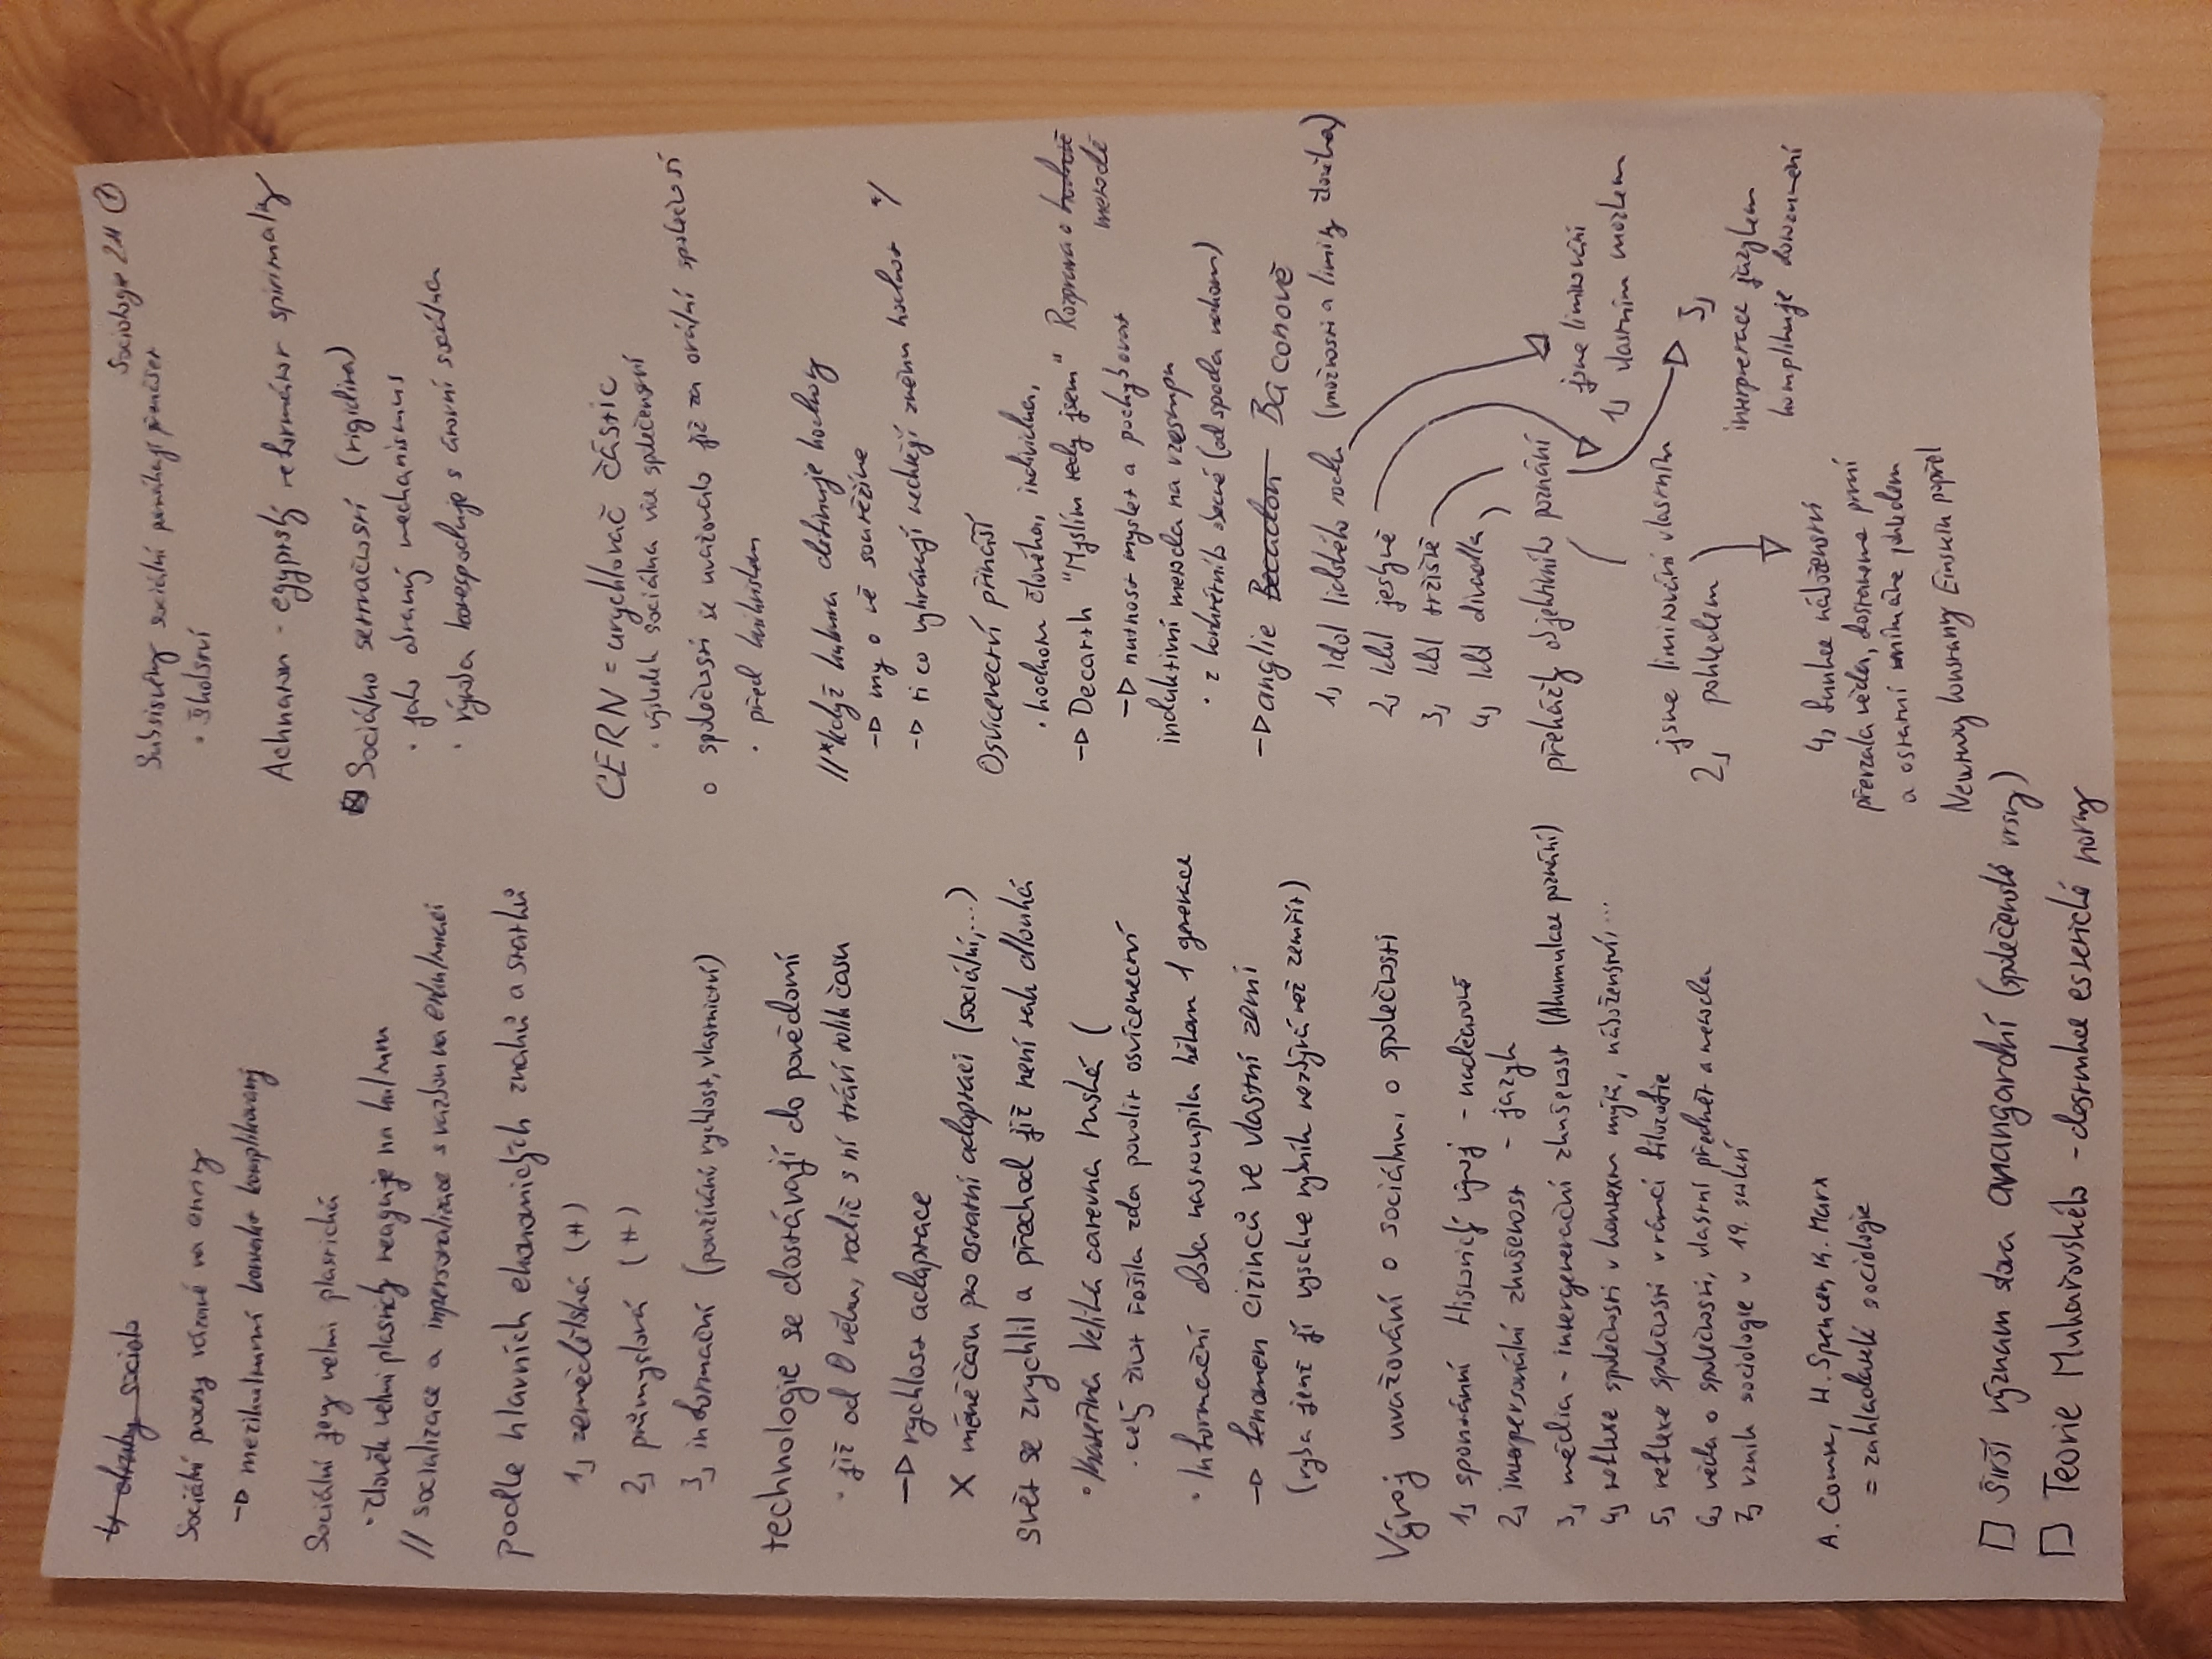 Sociologie 2M ①
↳ okruhy sociolo
Sociální pocesy vázané na
→ mezikulturní kontakt komplikovaný
Sociální jevy velmi plastické
· člověk velmi plasticky reaguje na kulturu
// socializace a inpersonalizace s vazbou na enkulturaci
Podle hlavních ekonomických znaků a statků
1, zemědělská (H)
2, průmyslová (H)
3, informační (používání rychlost, vlastnictví)
technologie se dostávají do povědomí
· již od 0 věku, rodič s ní tráví tolik času
→ rychlost adaptace
X méně času pro ostatní adaptaci (sociální,...)
svět se zrychlil a přechod již není tak dlouhá
· Kateřina Veliká carevna ruská (
· celý život řešila zda povolit osvícenectví
· Informační doba nastoupila během 1 generace
→ fenomen cizinců ve vlastní zemi
(ryba jenž jí vyschne rybník nezbývá než zemřít)
Vývoj uvažování o sociálnu, o společnosti
1, spontánní Historický vývoj - nadčasové
2, interpersonální zkušenost - jazyk
3, média - intergenerační zkušenost (Akumulace poznání)
4, reflexe společnosti v kontextu mýtů, náboženství,...
5, reflexe společnosti v rámci filozofie
6, věda o společnosti, vlastní předmět a metoda
7, vznik sociologie v 19. století
A. Comte, H. Spencer, K. Marx
= zakladatelé sociologie
□ Širší význam slova avantgardní (společenské vrstvy)
□ Teorie Mukařovského - destrukce estetické normy
Subsystémy sociální pomáhají přenášet
· školství
Achnaton - egyptský reformátor spirituality
Sociálno setrvačnosti (rigidita)
· jako obranný mechanismus
· výroba koresponduje s úrovní sociálna
CERN = urychlovač částic
· výsledek sociálna více společenství
o společnosti se uvažovalo již za orální společnosti
· před kulturou
//*když kultura definuje hodnoty
→ my o vě soutěžíme
→ ti co vyhrávají nechtějí změnu hodnot */
Osvícenectví přináší
· hodnotu člověka, individua,
→ Decarth "Myslím tedy jsem" Rozprava o metodě
→ nutnost myslet a pochybovat
induktivní metoda na vzestupu
· z konkrétního obecné (od spoda nahoru)
→ anglie Baconově
1, Idol lidského rodu (možnosti a limity člověka)
2, Idol jeskyně
3, Idol tržiště
4, Idol divadla
překážky objektivního poznání
jsme limitováni
1, vlastním mozkem
jsme limitováni vlastním
2, pohledem
3,
interpretace jazykem
komplikuje dorozumění
4, funkce náboženství
převzala věda, dostaneme první
a ostatní vnímáme pohledem
Newtnovy konstanty Einstein popřel